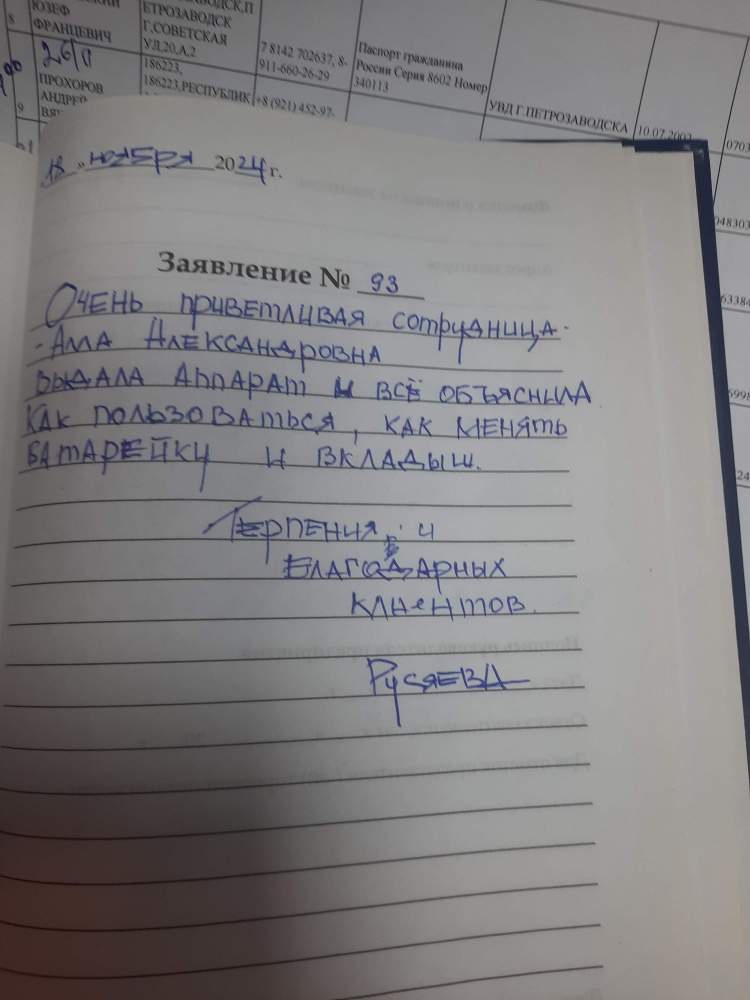 8
ЮЗЕФ
ФРАНЦЕВИЧ
ЕТРОЗАВОДСК
Г,СОВЕТСКАЯ
УЛ,20,А,2
7 8142 702637, 8-
911-660-26-29
Паспорт гражданина
России Серия 8602 Номер
340113
УВД Г.ПЕТРОЗАВОДСКА
10.07.2002
0703
26/П
9
ПРОХОРОВ
АНДРЕЙ
186223,
186223,РЕСПУБЛИК
+8 (921) 452-97-
048303
63384
6998
18 " НОЯБРЯ 2024 г.
Заявление № 93
ОЧЕНЬ ПРИВЕТЛИВАЯ СОТРУДНИЦА -
- АЛЛА АЛЕКСАНДРОВНА
ВЫДАЛА АППАРАТ И ВСЁ ОБЪЯСНИЛА
КАК ПОЛЬЗОВАТЬСЯ, КАК МЕНЯТЬ
БАТАРЕЙКУ И ВКЛАДЫШ.
ТЕРПЕНИЯ И
БЛАГОДАРНЫХ
КЛИЕНТОВ.
РУСЯЕВА